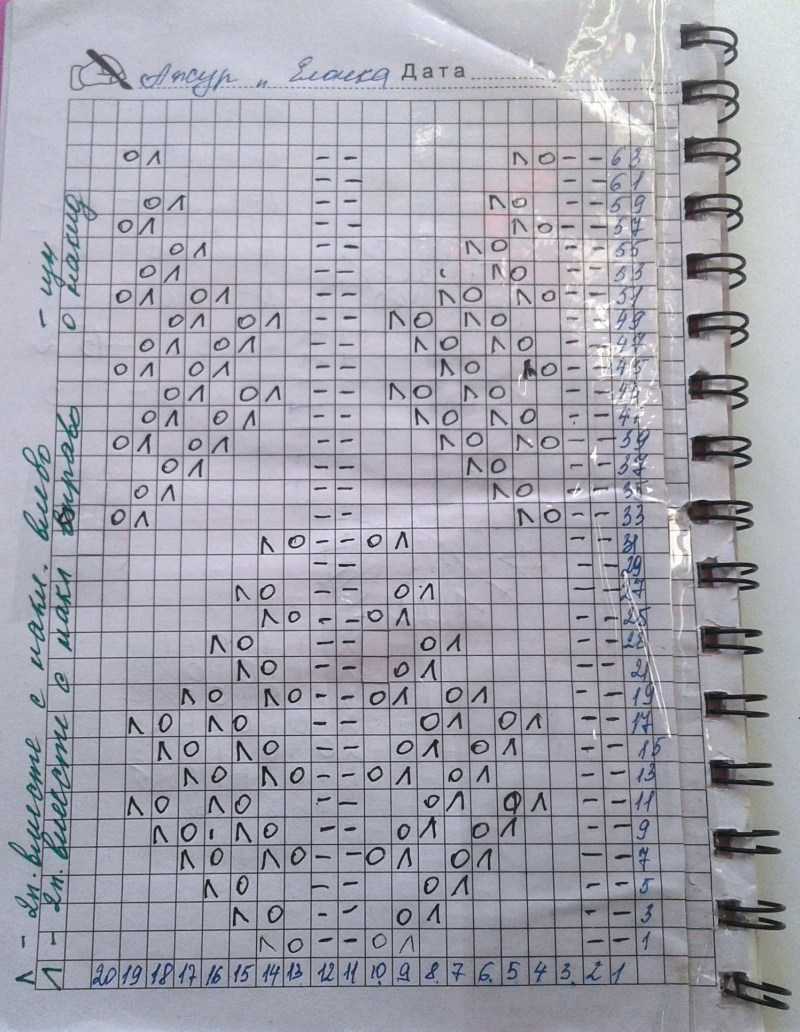 Ажур и Елочка Дата
O Λ - - Λ O - - 63
- - - - 61
O Λ - - Λ O - - 59
O Λ - - Λ O - - 57
O Λ - - Λ O - - 55
O Λ - - Λ O - - 53
O Λ O Λ - - Λ O Λ O - - 51
O Λ O Λ - - Λ O Λ O - - 49
O Λ O Λ - - Λ O Λ O - - 47
O Λ O Λ - - Λ O Λ O - - 45
O Λ O Λ - - Λ O Λ O - - 43
O Λ O Λ - - Λ O Λ O - - 41
O Λ O Λ - - Λ O Λ O - - 39
O Λ - - Λ O - - 37
O Λ - - Λ O - - 35
O Λ - - Λ O - - 33
Λ O - - O Λ - - 31
- - - - 29
Λ O - - O Λ - - 27
Λ O - - O Λ - - 25
Λ O - - O Λ - - 23
Λ O - - O Λ - - 21
Λ O Λ O - - O Λ O Λ - - 19
Λ O Λ O - - O Λ O Λ - - 17
Λ O Λ O - - O Λ O Λ - - 15
Λ O Λ O - - O Λ O Λ - - 13
Λ O Λ O - - O Λ O Λ - - 11
Λ O Λ O - - O Λ O Λ - - 9
Λ O Λ O - - O Λ O Λ - - 7
Λ O - - O Λ - - 5
Λ O - - O Λ - - 3
Λ O - - O Λ - - 1
20 19 18 17 16 15 14 13 12 11 10 9 8 7 6 5 4 3 2 1
Λ - 2п. вместе с накл. влево
Λ - 2п. вместе с накл вправо О накид